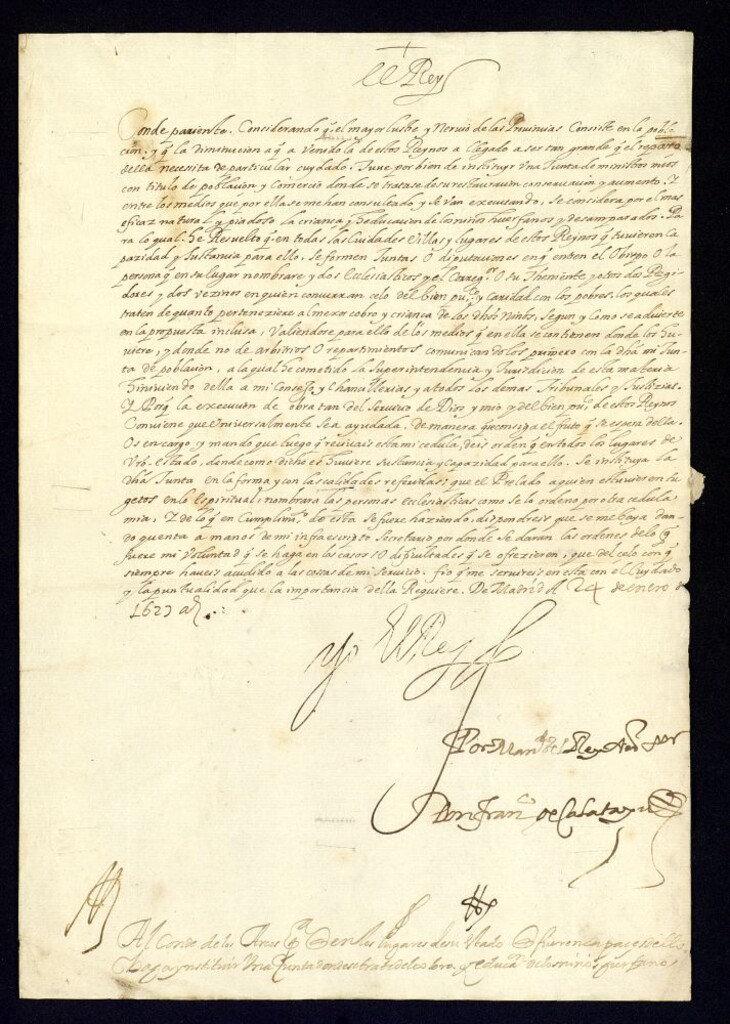 El Rey
Conde pariente. Considerando q̃ el mayor lustre y Nervio de las Provincias Consiste en la pobla
cion. y q̃ la Diminucion a q̃ a Venido la de estos Reynos a llegado a ser tan grande q̃ el reparo
della necesita de particular cuydado. Tuve por bien de instituyr Una Junta de ministros mios
con titulo de poblacion y Comercio donde se tratase de su restauracion conservacion y aumento. Y
entre los medios que por ella se me han consultado y se Van executando, se considera por el mas
eficaz natural y piadoso la criança y Educacion de los niños huerfanos y desamparados. Pa
ra lo qual He Resuelto q̃ en todas las Ciudades Villas y lugares de estos Reynos q̃ tuvieren Ca
pazidad y Sustancia para ello. se formen Juntas O diputaciones en q̃ entren el Obispo O la
persona q̃ en su lugar nombrare y dos Ecclesiasticos y el Correg.or O su Theniente y otros dos Regi
dores y dos vezinos en quien concurran celo del bien pu.co y Caridad con los pobres, los quales
traten de quanto perteneziere al mero cobro y criança de los dhos Niños, Segun y Como se advierte
en la propuesta inclusa, Valiendose para ello de los medios q̃ en ella se contienen donde los Hu
viere, y donde no de arbitrios O repartimientos comunicandolos primero con la dha mi Jun
ta de poblacion, a la qual he cometido la Superintendencia y Jurisdicion de esta materia
Inhiviendo della a mi Consejo, y Chancillerias y a todos los demas Tribunales y Justicias.
Y Porq̃ la execucion de obra tan del Servicio de Dios y mio y del bien pu.co de estos Reynos
Conviene que Universalmente sea ayudada. De manera q̃ consiga el fruto q̃ se espera della.
Os encargo, y mando que luego q̃ recivais esta mi cedula, deis orden q̃ en todos los lugares de
Vro. estado, donde como dicho es Huviere Sustancia y Capazidad para ello. Se instituya la
dha Junta en la forma y con las calidades referidas: que el Prelado a quien estuvieren su
getos en lo Espiritual, nombrara las personas ecclesiasticas como se lo ordeno por otra cedula
mia, Y de lo q̃ en Cumplim.to de esta se fuere haziendo, dispondreis que se me baya dan
do quenta a manos de mi infraescripto Secretario por donde se daran las ordenes de lo q̃
fuere mi Voluntad q̃ se haga en los casos y dificultades q̃ se ofrezieren, que del celo con q̃
siempre haveis acudido a las cosas de mi Servicio. fio q̃ me servireis en esta con el Cuydado
y la puntualidad que la importancia della Requiere. De Madrid A 24 de enero de
1627 a.s
Yo El Rey
Por Man.do del Rey Nro s.or
Don Fran.co de Calatayud
Al Conde de los Arcos P.a q̃ en los lugares de su estado q̃ fueren capaces de ello
haga instituir Una Junta donde se trate del cobro, y educa.on de los niños huerfanos